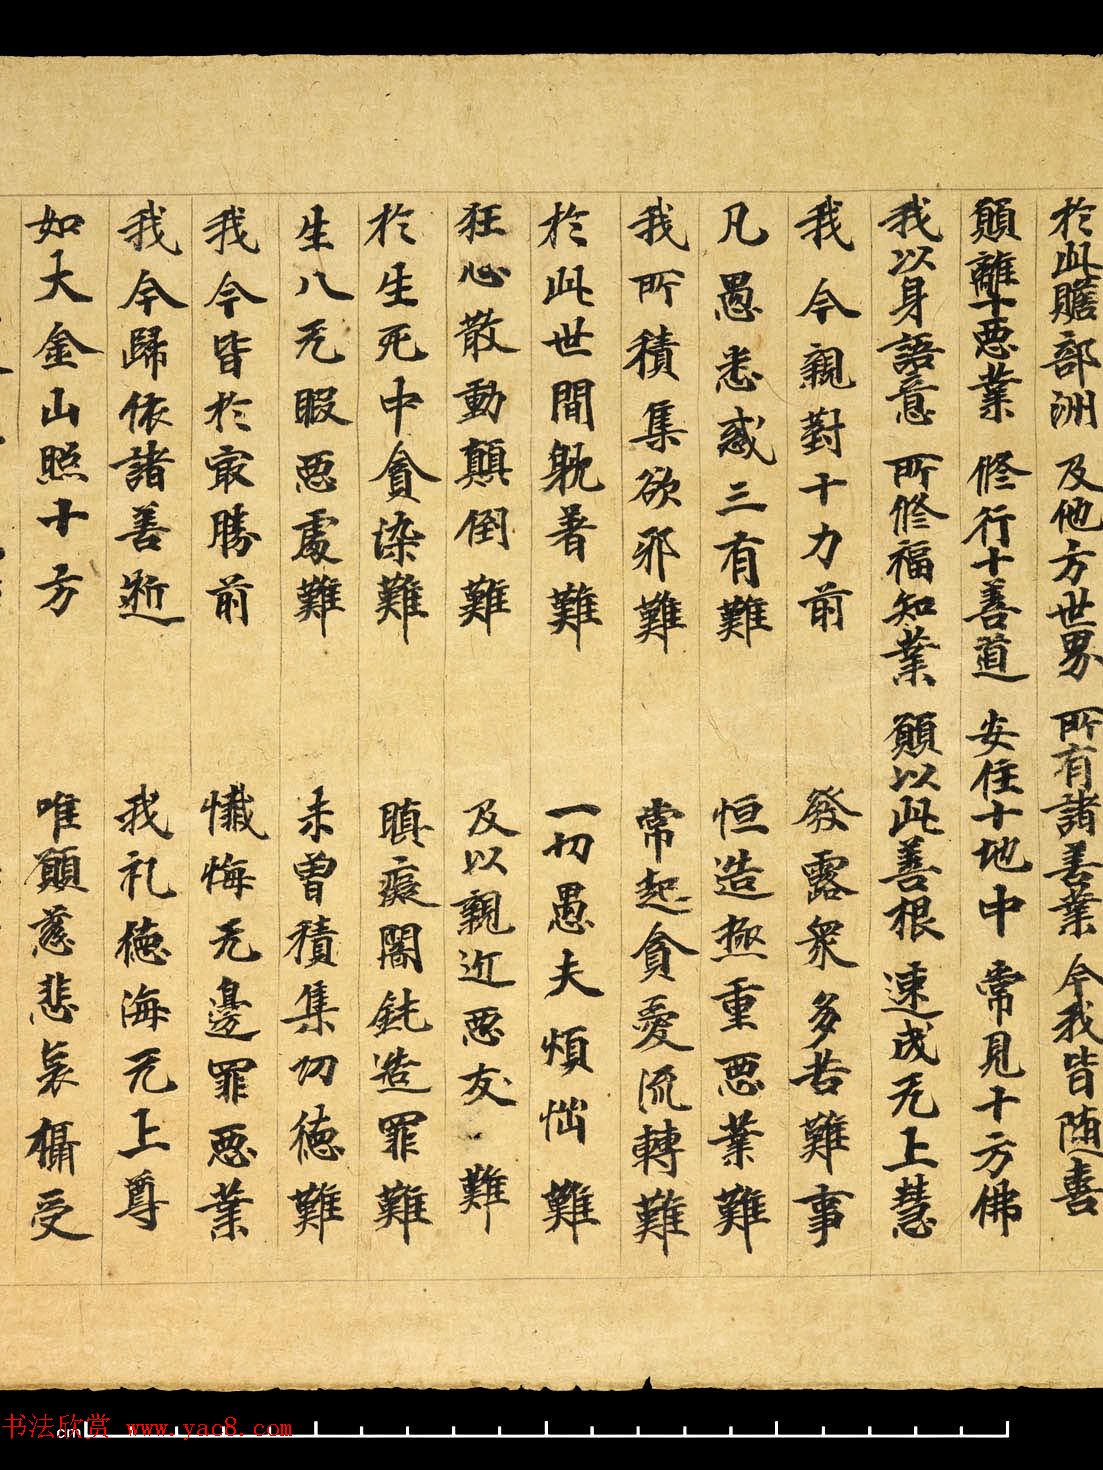 於此贍部洲 及他方世界 所有諸善業 今我皆随喜
願離十惡業 修行十善道 安住十地中 常見十方佛
我以身語意 所修福知業 願以此善根 速成无上慧
我今親對十力前 發露衆多苦難事
凡愚悉惑三有難 恒造極重惡業難
我所積集欲邪難 常起貪愛流轉難
於此世間躭著難 一切愚夫煩惱難
狂心散動顛倒難 及以親近惡友難
於生死中貪染難 瞋癡闇鈍造罪難
生八无暇惡處難 未曾積集功德難
我今皆於㝡勝前 懺悔无邊罪惡業
我今歸依諸善逝 我礼德海无上尊
如大金山照十方 唯願慈悲哀攝受
cm
书法欣赏 www.yac8.com